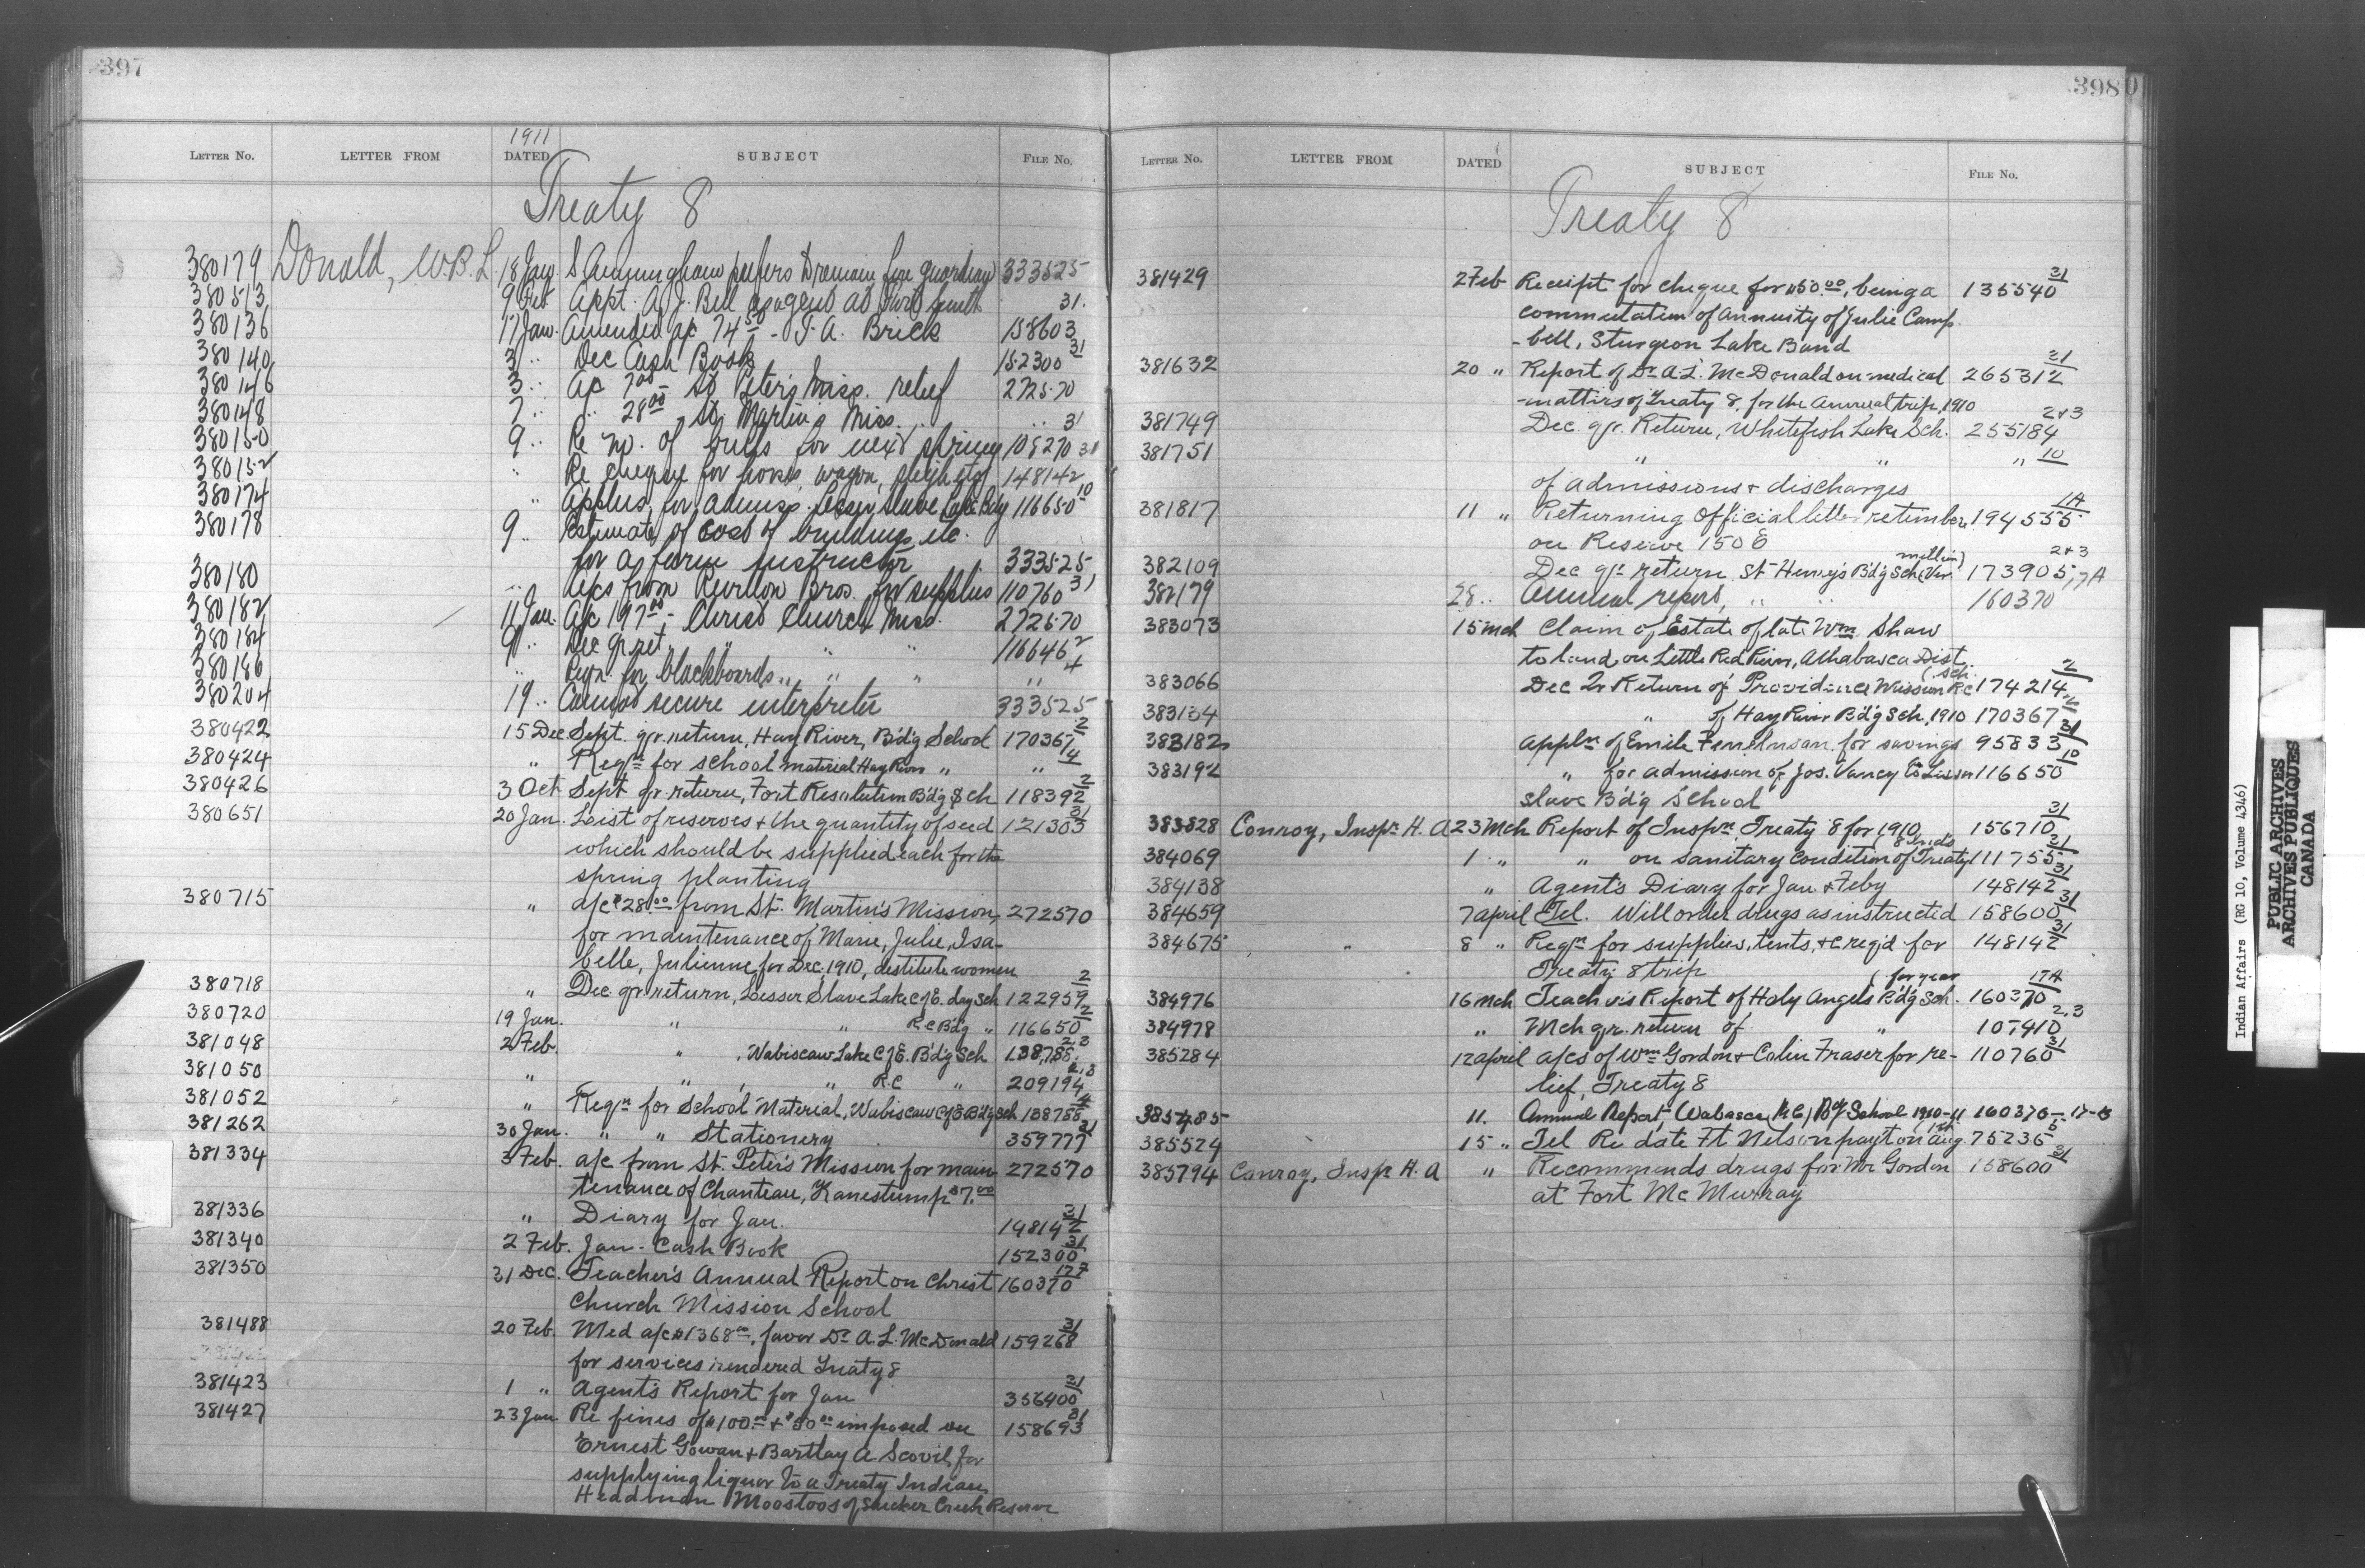 397
LETTER NO. LETTER FROM 1911 DATED SUBJECT FILE No.
Treaty 8
380179 Donald, W.B.L. 18 Jan. S. Cunningham prefers for guardian 333525
380513 9 Feb Appt. A.J. Bell as agent at Fort Smith 31.
380136 17 Jan. Amended a/c 74 50 - T. A. Brick 158603
380140 3 " Dec Cash Book 152300 31
380146 3 " A/c 7 00 - St Peter's Miss. relief 272570
380148 7 " " 28 00 St. Martin's Miss. " 31
380150 9 " Re no. of for next spring 108270 31
380152 " Re cheque for horses, wagon, sleigh etc 148142
380174 " Applns. for admiss. Lesser Slave Lake Bdg 116650 10
380178 9 " Estimate of cost of buildings etc.
for a farm instructor 333525
380180 " A/cs from Revillon Bros. for supplies 110760 31
380182 11 Jan. A/c 197 00 - Christ Church Miss. 272570
380184 9 " Dec qr ret. " " " 116646 2
380186 " Reqn. for blackboards " " " " 4
380204 19 " Cannot secure interpreter 333525
380422 15 Dec Sept. qr. return, Hay River, Bdg School 170367 2
380424 " Reqn for school material Hay River " " 4
380426 3 Oct Sept qr. return, Fort Resolution Bdg Sch 118392 2
380651 20 Jan. List of reserves & the quantity of seed 121303 31
which should be supplied each for the
spring planting
380715 " a/c $28.00 from St. Martin's Mission, 272570
for maintenance of Marie, Julie, Isa-
belle, Julienne for Dec. 1910, destitute women
380718 " Dec. qr return, Lesser Slave Lake C of E. day sch 122959 2
380720 19 Jan. " " R C Bdg " 116650 2
381048 2 Feb. " , Wabiscaw Lake C of E. Bdg Sch 138788 2.3
381050 " " , " R.C " 209194 2,3
381052 " Reqn for School Material, Wabiscaw C of E Bdg Sch 138788 4
381262 30 Jan. " " Stationery 359777 31
381334 3 Feb. a/c from St. Peter's Mission for main- 272570
tenance of Chanteau, Kanestump $7.00
381336 " Diary for Jan. 148142 31
381340 2 Feb. Jan. Cash Book 152300 31
381350 31 Dec. Teacher's Annual Report on Christ 160370 17 7
Church Mission School
381488 20 Feb Med a/c $1368 00, favor Dr A. L. McDonald 159268 31
for services rendered Treaty 8
381423 1 " Agent's Report for Jan 356400 31
381427 23 Jan. Re fines of $100.00 & $50 00 imposed on 158693 31
Ernest Gowan & Bartlay A Scovil, for
supplying liquor to a Treaty Indian
Headman Moostoos of Sucker Creek Reserve
398
LETTER NO. LETTER FROM DATED SUBJECT FILE NO.
Treaty 8
381429 2 Feb Receipt for cheque for $50.00, being a 135540 31
commutation of Annuity of Julie Camp-
-bell, Sturgeon Lake Band
381632 20 " Report of Dr. A.L. McDonald on medical 265312 31
matters of Treaty 8, for the Annual trip, 1910
381749 Dec. qr. Return, Whitefish Lake Sch. 255184 2&3
381751 " " " 10
of admissions & discharges
381817 11 " Returning official letter re timber 194555 14
on Reserve 150 E
382109 Dec qr return St Henry's Bdg Sch (Ver- million) 173905 2&3
382179 28 " Annual report, " " 160370, 17A
383073 15 Mch Claim of Estate of late Wm Shaw
to land on Little Red River, Athabasca Dist.
383066 Dec Qr Return of Providence Mission R C (Sch. 174214 2
383134 " of Hay River Bdg Sch. 1910 170367 2
383182 Appln of Emile for savings 95833 31
383192 " for admission of Jos. Vancy to Lesser 116650 10
Slave Bdg School
383828 Conroy, Inspr. H. A 23 Mch Report of Inspn Treaty 8 for 1910 156710 31
384069 1 " " on sanitary condition of Treaty (8 Inds 111755 31
384138 " Agent's Diary for Jan. & Feby 148142 31
384659 7 April Tel. Will order drugs as instructed 158600 31
384675 " 8 " Reqn for supplies, tents, &c req'd for 148142 31
Treaty 8 trip
384976 16 Mch Teacher's Report of Holy Angels Bdg Sch. (for year 160370 17A
384978 " Mch qr. return of " 107410 2,3
385284 12 April a/cs of Wm Gordon & Colin Fraser for re- 110760 31
lief, Treaty 8
385485 11. Annual Report, Wabasca (R.C.) Bdg School 1910-11 160370-17-13
385524 15 " Tel Re date Ft Nelson payt on 1st Aug. 75236 5
385794 Conroy, Inspr H. A " Recommends drugs for Mr Gordon 158600 31
at Fort McMurray
Indian Affairs (RG 10, Volume 4346)
PUBLIC ARCHIVES
ARCHIVES PUBLIQUES
CANADA